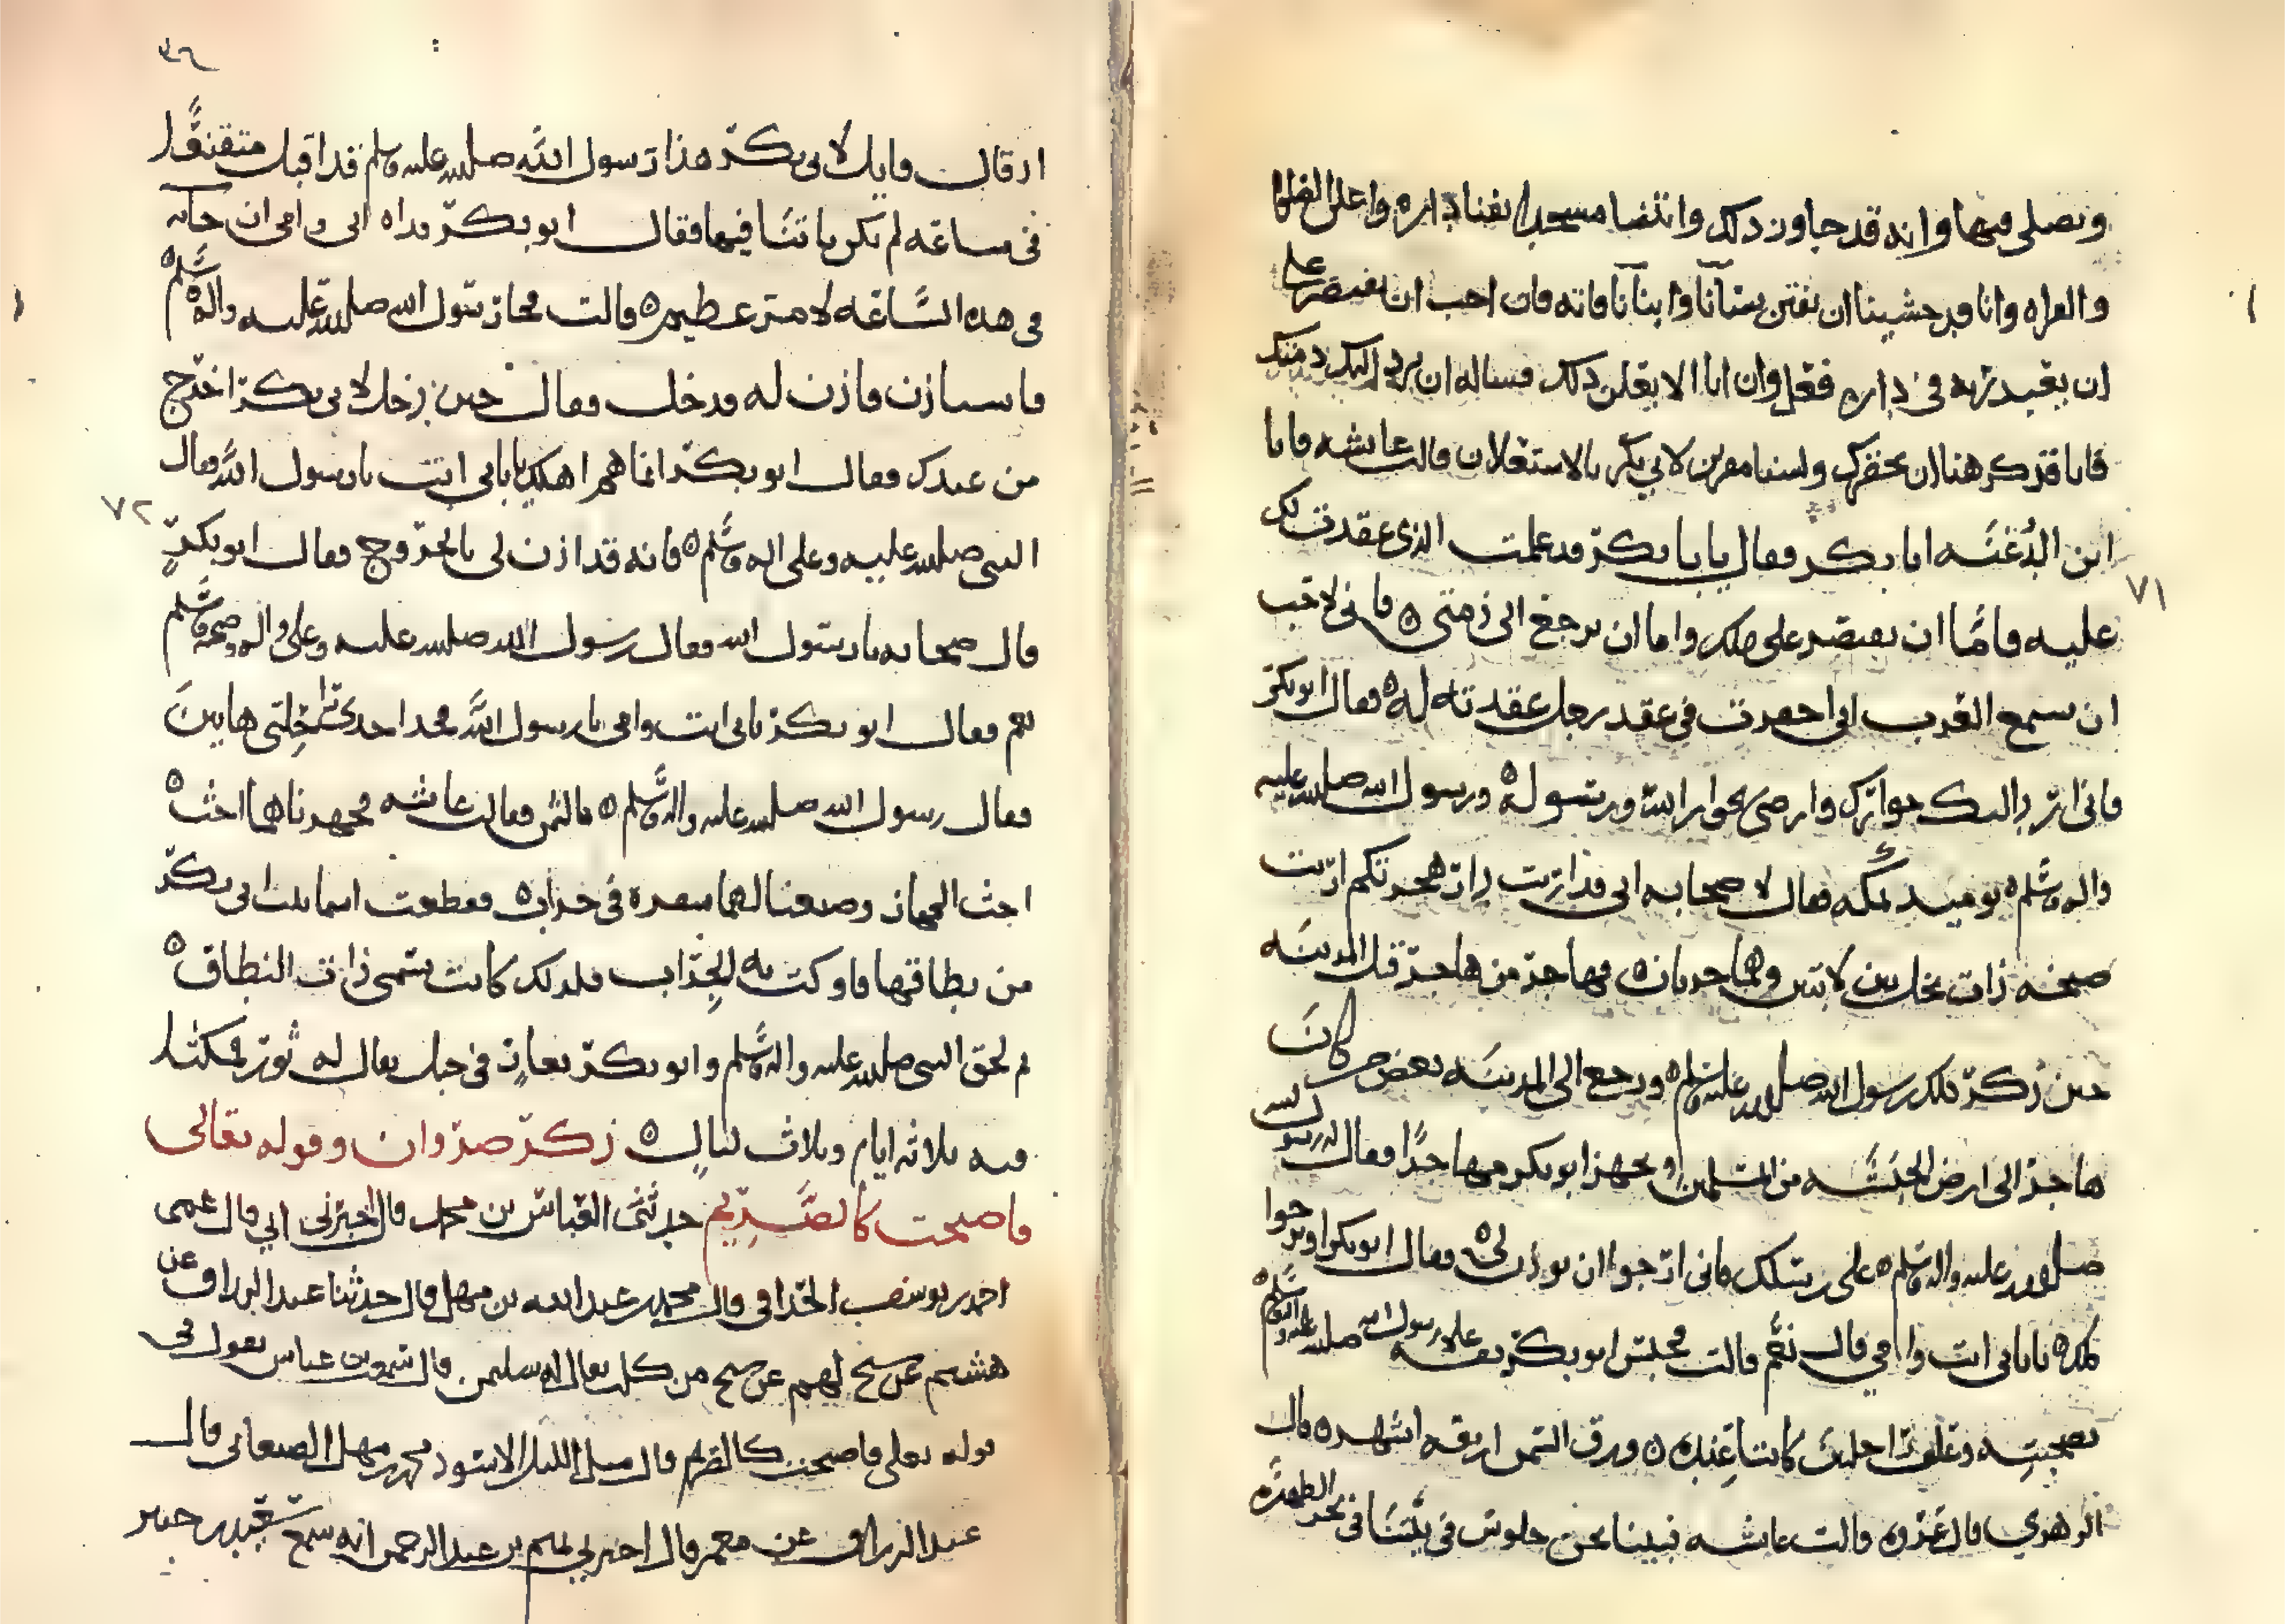 ويصلي فيها وانه قد جاوز ذلك وابتنا مسجدا بفنا داره واعلن الصلاة
والقراه وانا قد خشينا ان يفتن نسآنا وابنآنا فاته فان احب ان يقتصر على
ان يعبد ربه في داره فعل وان ابا الا يعلن ذلك فساله ان يرد اليك ذمتك
فانا قد كرهنا ان نخفرك ولسنا مقرين لابي بكر بالاستعلان قالت عايشه فاتا
ابن الدُّغنَّه ابا بكر فقال يا با بكر قد علمت الذي عقدت لك
عليه فامّا ان تقتصر على ذلك واما ان ترجع الى ذمتي ه فاني لا احب
ان تسمع العرب اني اخفرت في عقد رجل عقدت له ه فقال ابو بكر
فاني ارد اليك جوارك وارضى بجوار الله ورسوله ه ورسول الله صلى الله عليه
واله وسلم ه يوميذ بمكه فقال لاصحابه اني قد اريت دار هجرتكم اريت
سبخه ذات نخل بين لابتين وهما حرتان ه فهاجر من هاجر قبل المدينه
حين ذكر ذلك رسول الله صلى الله عليه وسلم ه ورجع الى المدينه بعض من كان
هاجر الى ارض الحبشه من المسلمين وتجهز ابو بكر مهاجرًا فقال له رسول الله
صلى الله عليه واله وسلم ه على رسلك فاني ارجوا ان يوذن لي ه فقال ابو بكر او ترجوا
ذلك ه يا نبي بابي انت وامي قال نعم قالت فحبس ابو بكر نفسه على رسول الله صلى الله عليه واله وسلم
لصحبته وعلف راحلتين كانتا عنده ه ورق السمر اربعه اشهر ه قال
الزهري قال عروه قالت عايشه فبينا نحن جلوس في بيتنا في نحر الظهيره
٧١
٣٦
اذ قال قايل لابي بكر هذا رسول الله صلى الله عليه وسلم قد اقبل متقنعًا
في ساعه لم يكن ياتينا فيها فقال ابو بكر فداه ابي وامي ان جآ به
في هذه السّاعه لامر عظيم ه قالت فجا رسول الله صلى الله عليه واله وسلم ه
فاستاذن فاذن له فدخل فقال حين دخل لابي بكر اخرج
من عندك فقال ابو بكر انما هم اهلك بابي انت يا رسول الله فقال
النبي صلى الله عليه وعلى اله وسلم ه فانه قد اذن لي بالخروج فقال ابو بكر
٧٢
قال صحابه يا رسول الله فقال رسول الله صلى الله عليه وعلى اله وصحبه وسلم
نعم فقال ابو بكر بابي انت وامي يا رسول الله فخذ احدى راحلتي هاتين
فقال رسول الله صلى الله عليه واله وسلم ه بالثمن فقالت عايشه فجهزناهما احث ه
احث الجهاز وصنعنا لهما سفره في جراب ه فقطعت اسما بنت ابي بكر
من نطاقها فاوكت به الجراب فلذلك كانت تسمى ذات النطاق ه
ثم لحق النبي صلى الله عليه واله وسلم وابو بكر بغار في جبل يقال له ثور فمكثا
فيه ثلاثه ايام وثلاث ليال ه ذكر صروان وقوله تعالى
فاصبحت كالصَّرِيم حدثني العباس بن محمد قال اخبرني ابي قال عمي
احمد بن يوسف الحذافي قال محمد بن عبد الله بن مهل قال حدثنا عبد الرزاق عن
هشيم عن شيخ لهم عن شيخ من كلب يقال له سليمن قال سمعت بن عباس يقول في
قوله تعلى فاصبحت كالصريم قال مثل الليل الاسود محمد بن مهل الصنعاني قال
عبد الرزاق عن معمر قال اخبرني نعيم بن عبد الرحمن انه سمع سعيد بن جبير